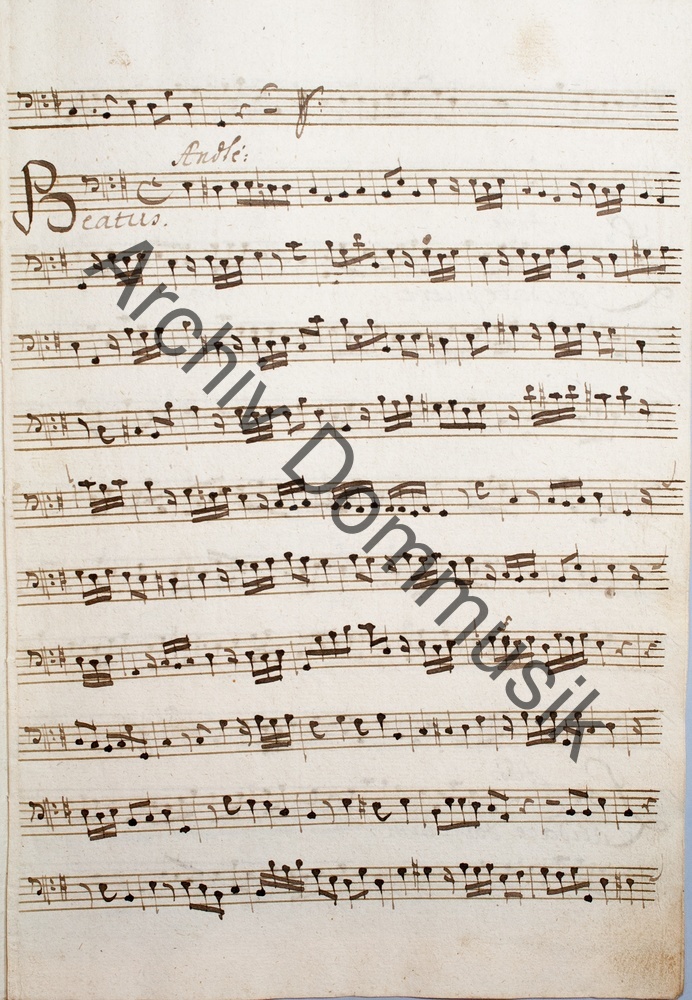 Andte:
Beatus.
Archiv Dommusik